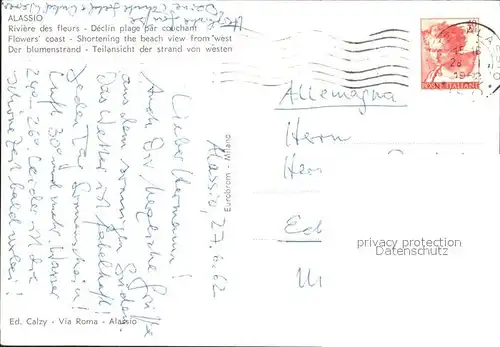 ALASSIO
Rivière des fleurs - Déclin plage par couchant
Flowers' coast - Shortening the beach view from west
Der blumenstrand - Teilansicht der strand von westen
Alassio, 27.6.62
Lieber Hermann!
Auch Dir herzliche Grüße
aus dem sonnigen Süden.
Das Wetter ist fabelhaft!
Jeden Tag Sonnenschein!
Luft 30° und mehr. Wasser
24°-26° Leider ist die
schöne Zeit bald vorbei!
Eurobrom - Milano
Ed. Calzy - Via Roma - Alassio
ALASSIO
POSTE ITALIANE
Allemagna
Herrn
privacy protection
Datenschutz